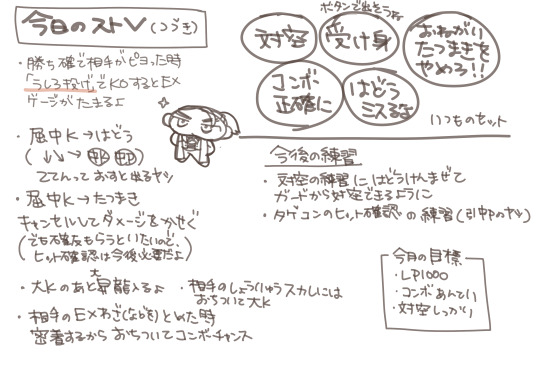 今日のストV(つづき)
・勝ち確で相手がピヨった時
「うしろ投げ」でKOするとEX
ゲージがたまるよ
・屈中K→はどう
(↓↘→ 中K 中P)
ってんって おすと出るヤツ
・屈中K→たつまき
キャンセルしてダメージをかせぐ
(でも確反もらうといたいので、
ヒット確認は今後必要だよ)
・大Kのあと大昇龍入るよ
・相手のしょうりゅうスカしには
おちついて大K
・相手のEXわざ(など)を といた時
密着するから おちついてコンボチャンス
ボタンで出そうね
対空
受け身
おねがい
たつまきを
やめろ!!
コンボ
正確に
はどう
ミスるな
いつものセット
今後の練習
・対空の練習にはどうけんまぜて
ガードから対空できるように
・タゲコンのヒット確認の練習(引中Pのヤツ)
今月の目標
・LP1000
・コンボあんてい
・対空しっかり